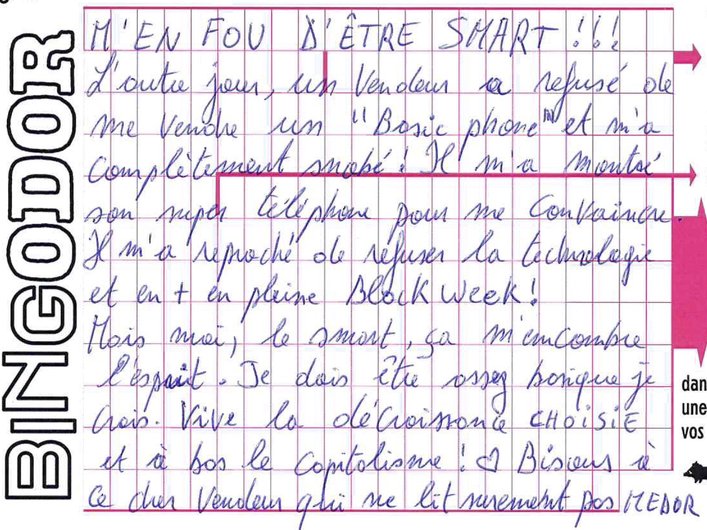 BINGODOR
M'EN FOU D'ÊTRE SMART !!!
L'autre jour, un vendeur a refusé de
me vendre un "Basic phone" et m'a
complètement snobé ! Il m'a montré
son super téléphone pour me convaincre.
Il m'a reproché de refuser la technologie
et en + en pleine Black Week !
Mais moi, le smart, ça m'encombre
l'esprit. Je dois être assez basique je
crois. Vive la décroissance CHOISIE
et à bas le capitalisme ! ♡ Bisous à
ce cher vendeur qui ne lit sûrement pas MEDOR
dan
une
vos